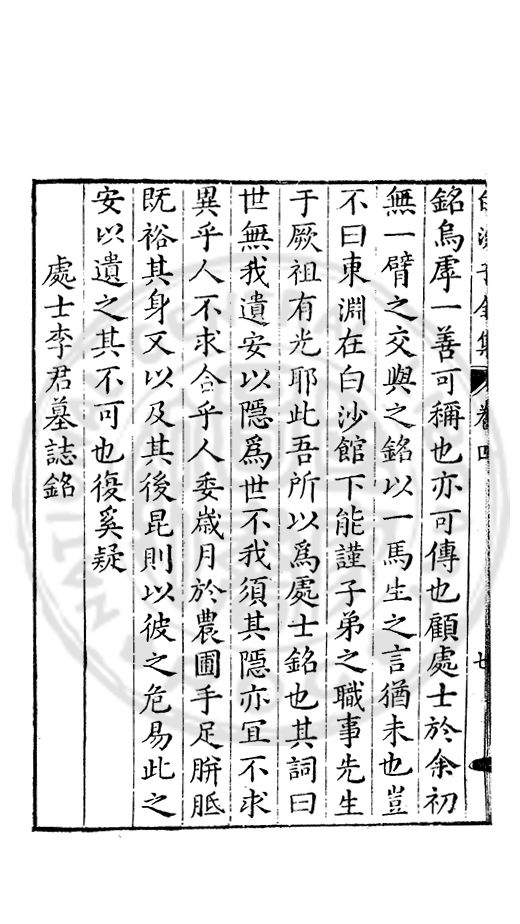 銘烏虖一善可稱也亦可傳也顧處士於余初
無一臂之交與之銘以一馬生之言猶未也豈
不曰東淵在白沙館下能謹子弟之職事先生
于厥祖有光耶此吾所以爲處士銘也其詞曰
世無我遺安以隱爲世不我須其隱亦冝不求
異乎人不求合乎人委嵗月於農圃手足胼胝
既裕其身又以及其後昆則以彼之危易此之
安以遺之其不可也復奚疑
處士李君墓誌銘